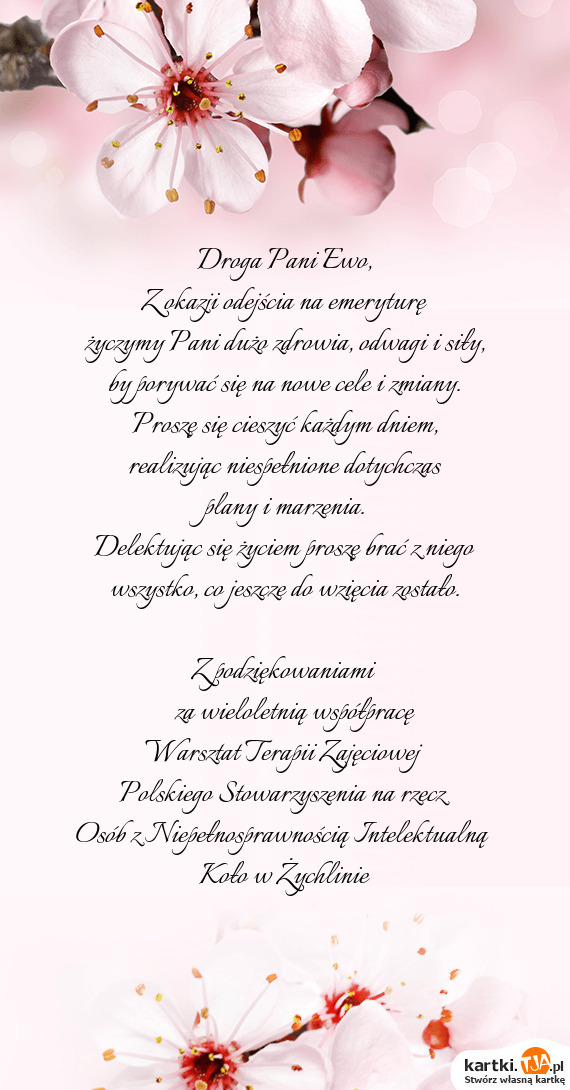 Droga Pani Ewo,
Z okazji odejścia na emeryturę
życzymy Pani dużo zdrowia, odwagi i siły,
by porywać się na nowe cele i zmiany.
Proszę się cieszyć każdym dniem,
realizując niespełnione dotychczas
plany i marzenia.
Delektując się życiem proszę brać z niego
wszystko, co jeszcze do wzięcia zostało.
Z podziękowaniami
za wieloletnią współpracę
Warsztat Terapii Zajęciowej
Polskiego Stowarzyszenia na rzecz
Osób z Niepełnosprawnością Intelektualną
Koło w Żychlinie
kartki.TJA.pl
Stwórz własną kartkę